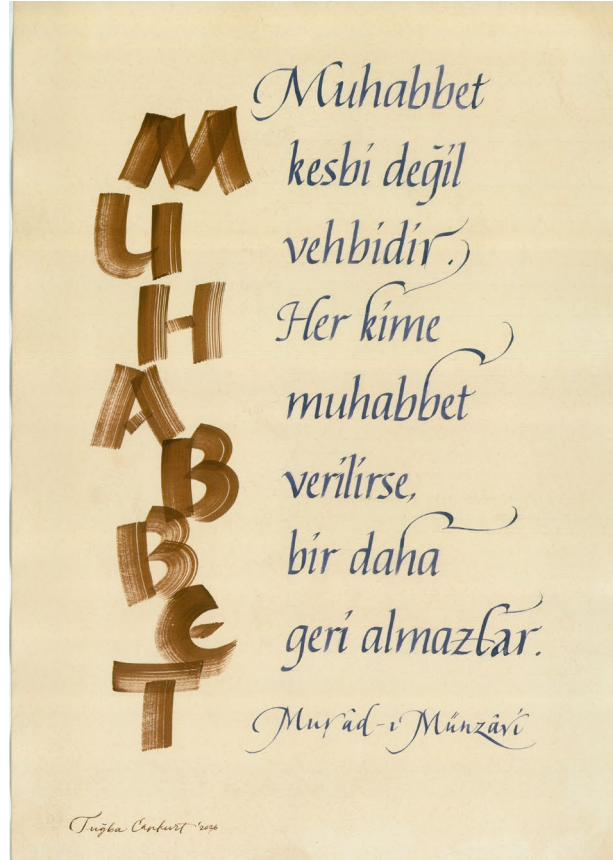 MUHABBET
Muhabbet
kesbi değil
vehbidir.
Her kime
muhabbet
verilirse,
bir daha
geri almazlar.
Murâd-ı Münzâvi
Tuğba Cankurt '2026